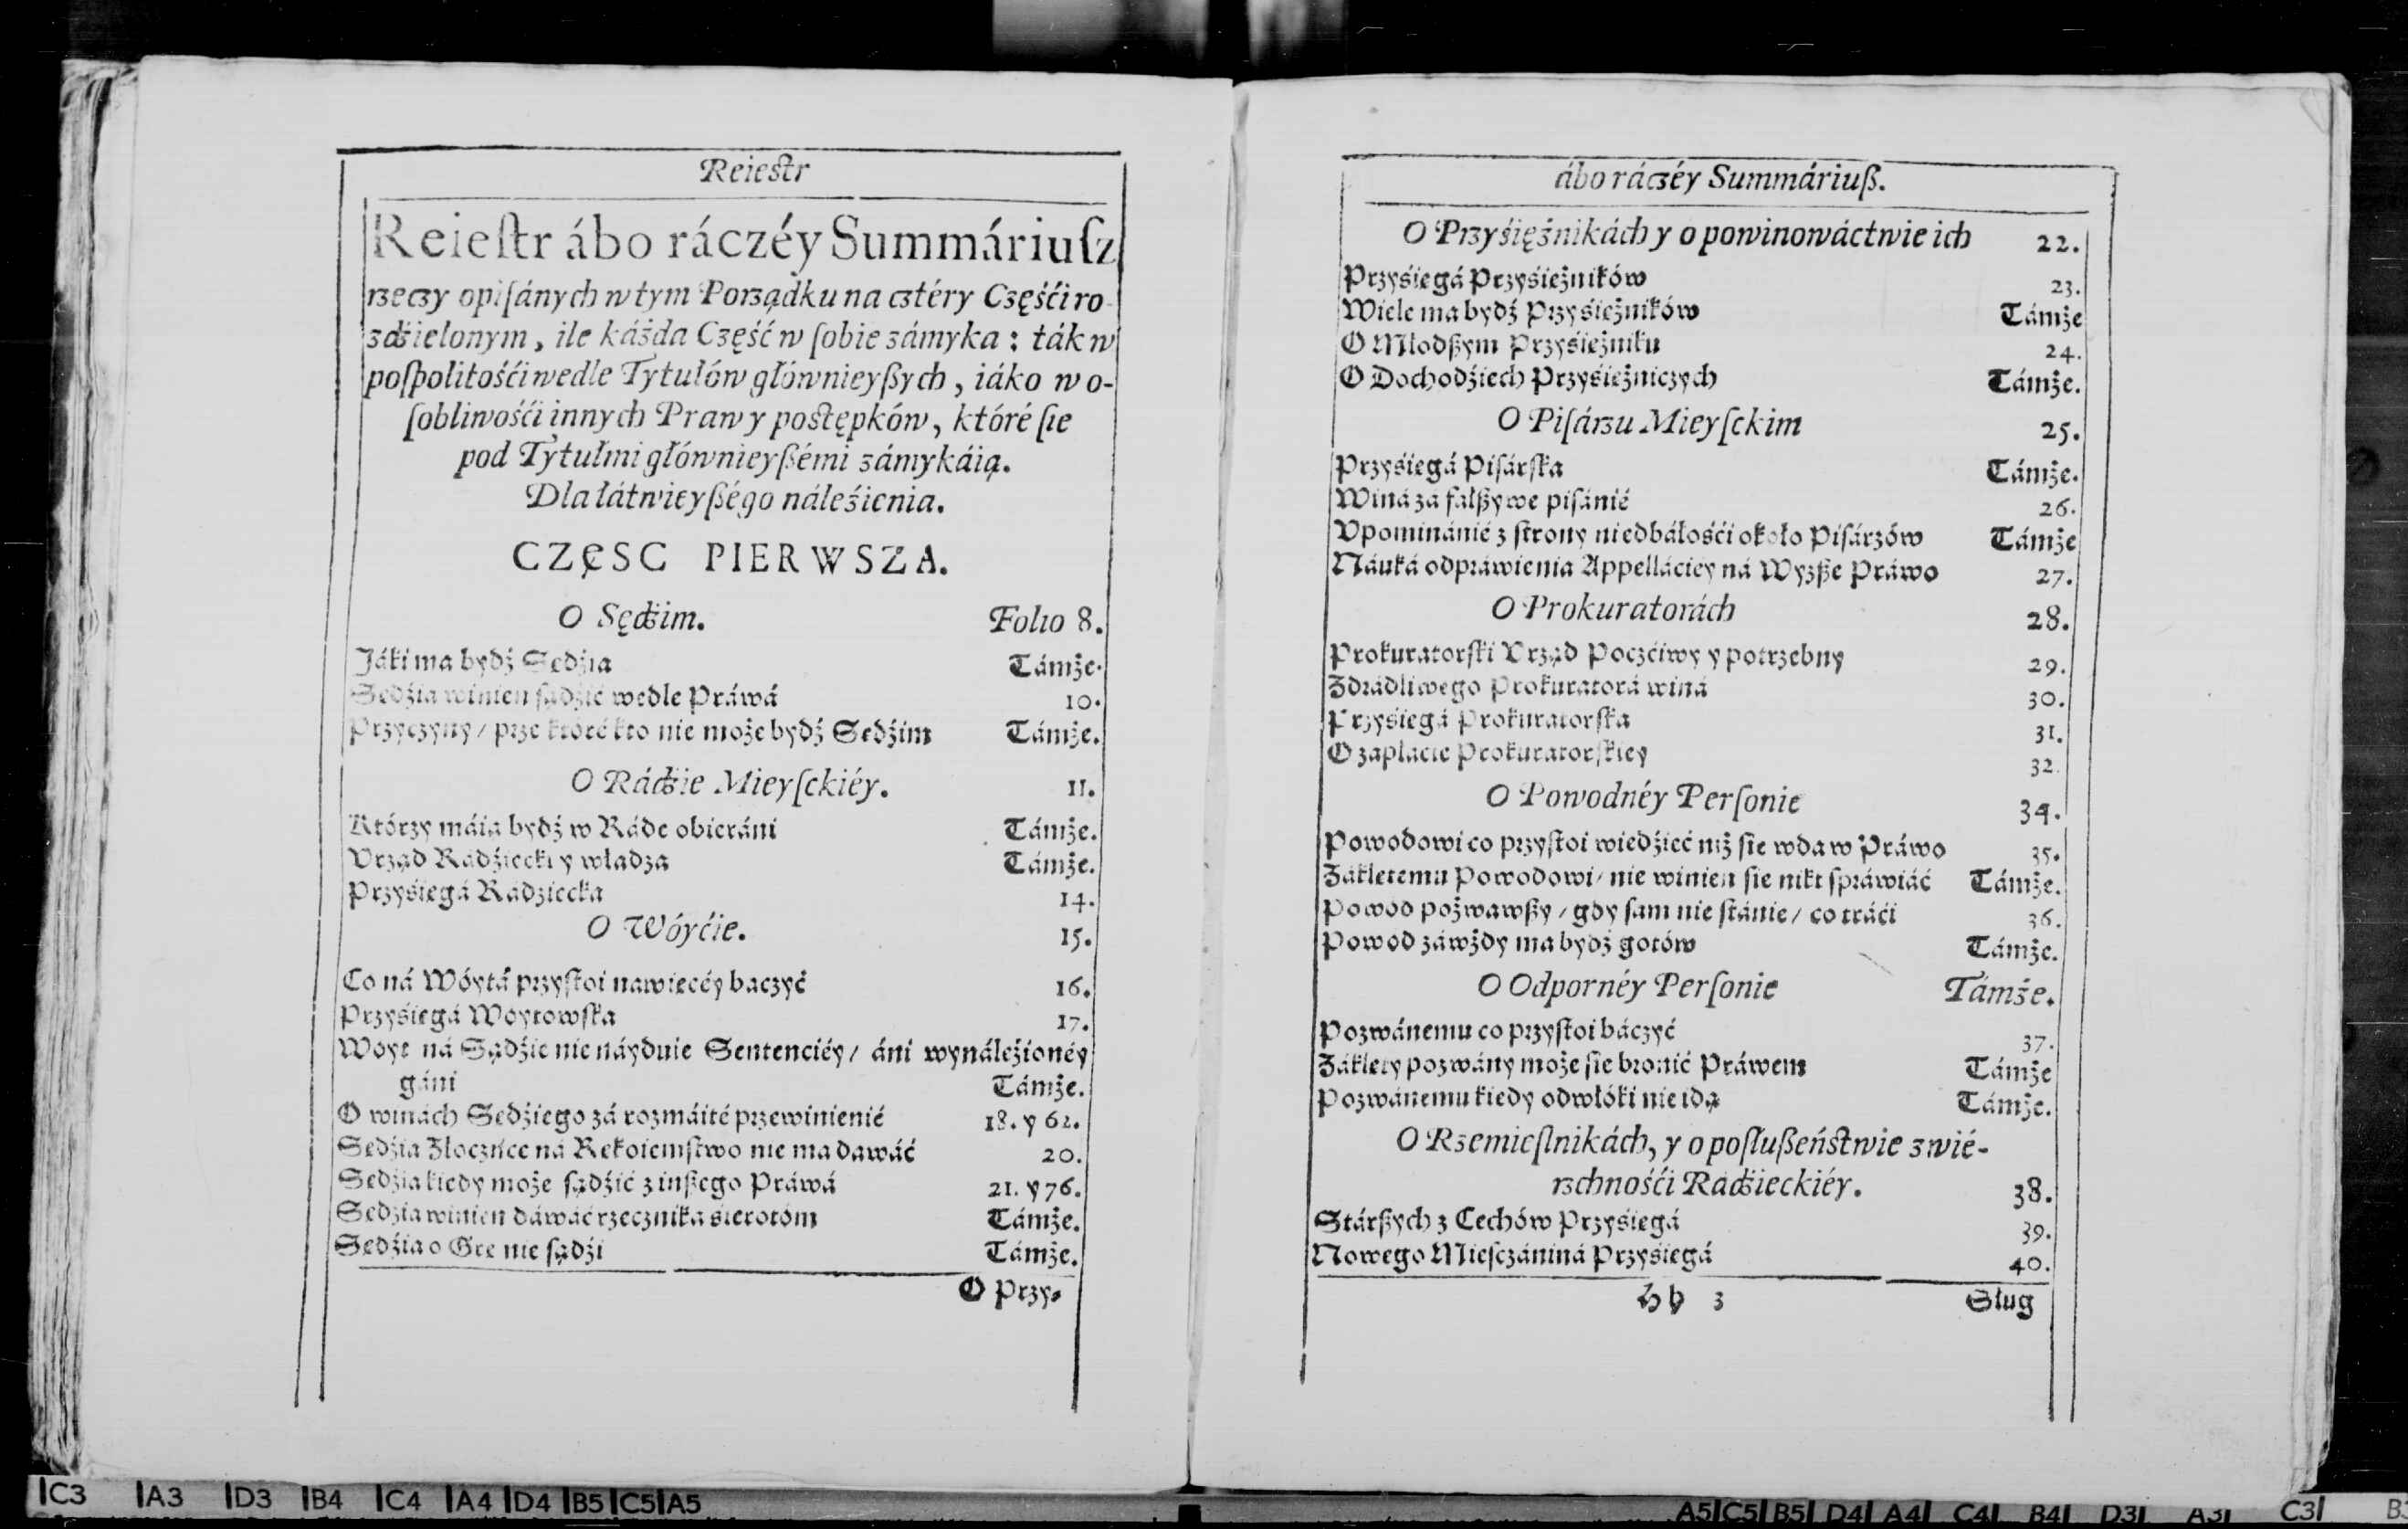 Reiestr
Reieſtr ábo ráczéy Summáriuſz
rzeczy opiſánych w tym Porządku na cztéry Częśći ro-
zdźielonym, ile káżda Część w ſobie zámyka : ták w
poſpolitośći wedle Tytułów głównieyßych, iáko w o-
ſobliwośći innych Praw y postępków, któré ſie
pod Tytułmi główniey߀émi zámykáią.
Dla łátwieyßégo náleźienia.
CZĘSC PIERWSZA.
O Sędźim. Folio 8.
Jáki ma bydź Sędźia Támże.
Sędźia winien ſądźić wedle Práwá 10.
Przyczyny / prze któré kto nie może bydź Sędźim Támże.
O Rádźie Mieyſckiéy. 11.
Którzy máią bydź w Rádę obieráni Támże.
Vrząd Rádźiecki y władza Támże.
Przyśięgá Rádziecka 14.
O Wóyćie. 15.
Co ná Wóytá przyſtoi nawięcéy baczyć 16.
Przyśięgá Wóytowſka 17.
Woyt ná Sądźie nie náyduie Sentenciéy / áni wynáleźionéy
gáni Támże.
O winách Sędźiego zá rozmáité przewinienié 18. y 62.
Sędźia Złoczńcę ná Rękoiemſtwo nie ma dawáć 20.
Sędźia kiedy może ſądźić z inßego Práwá 21. y 76.
Sędźia winien dáwáć rzeczniká śierotóm Támże.
Sędźia o Grę nie ſądźi Támże.
O Przy-
ábo ráczéy Summáriuß.
O Przyśiężnikách y o powinowáctwie ich 22.
Przyśięgá Przyśiężników 23.
Wiele ma bydź Przyśiężników Támże
O Młodßym Przyśiężniku 24.
O Dochodźiech Przyśiężniczych Támże.
O Piſárzu Mieyſckim 25.
Przyśięgá Piſárſka Támże.
Winá zá fałßywe piſánié 26.
Vpominánié z ſtrony niedbáłośći około Piſárzów Támże
Náuká odpráwienia Appelláciéy ná Wyzße Práwo 27.
O Prokuratorách 28.
Prokuratorſki Vrząd Poczćiwy y potrzebny 29.
Zdradliwego Prokuratorá winá 30.
Przyśięgá Prokuratorſka 31.
O zapłacie Prokuratorſkiey 32.
O Powodnéy Perſonie 34.
Powodowi co przyſtoi wiedźieć niż ſie wda w Práwo 35.
Zaklętemu Powodowi / nie winien ſie nikt ſpráwiáć Támże.
Powod poźwawßy / gdy ſam nie ſtánie / co tráći 36.
Powod záwżdy ma bydź gotów Támże.
O Odpornéy Perſonie Támże.
Pozwánemu co przyſtoi báczyć 37.
Zaklęty pozwány może ſie bronić Práwem Támże
Pozwánemu kiedy odwłóki nie idą Támże.
O Rzemieſlnikách, y o poſłußeństwie zwié-
rzchnośći Rádźieckiéy. 38.
Stárßych z Cechów Przyśięgá 39.
Nowego Mieſczániná Przyśięgá 40.
Hh 3 Sług
C3 A3 D3 B4 C4 A4 D4 B5 C5 A5
A5 C5 B5 D4 A4 C4 B4 D3 A3 C3